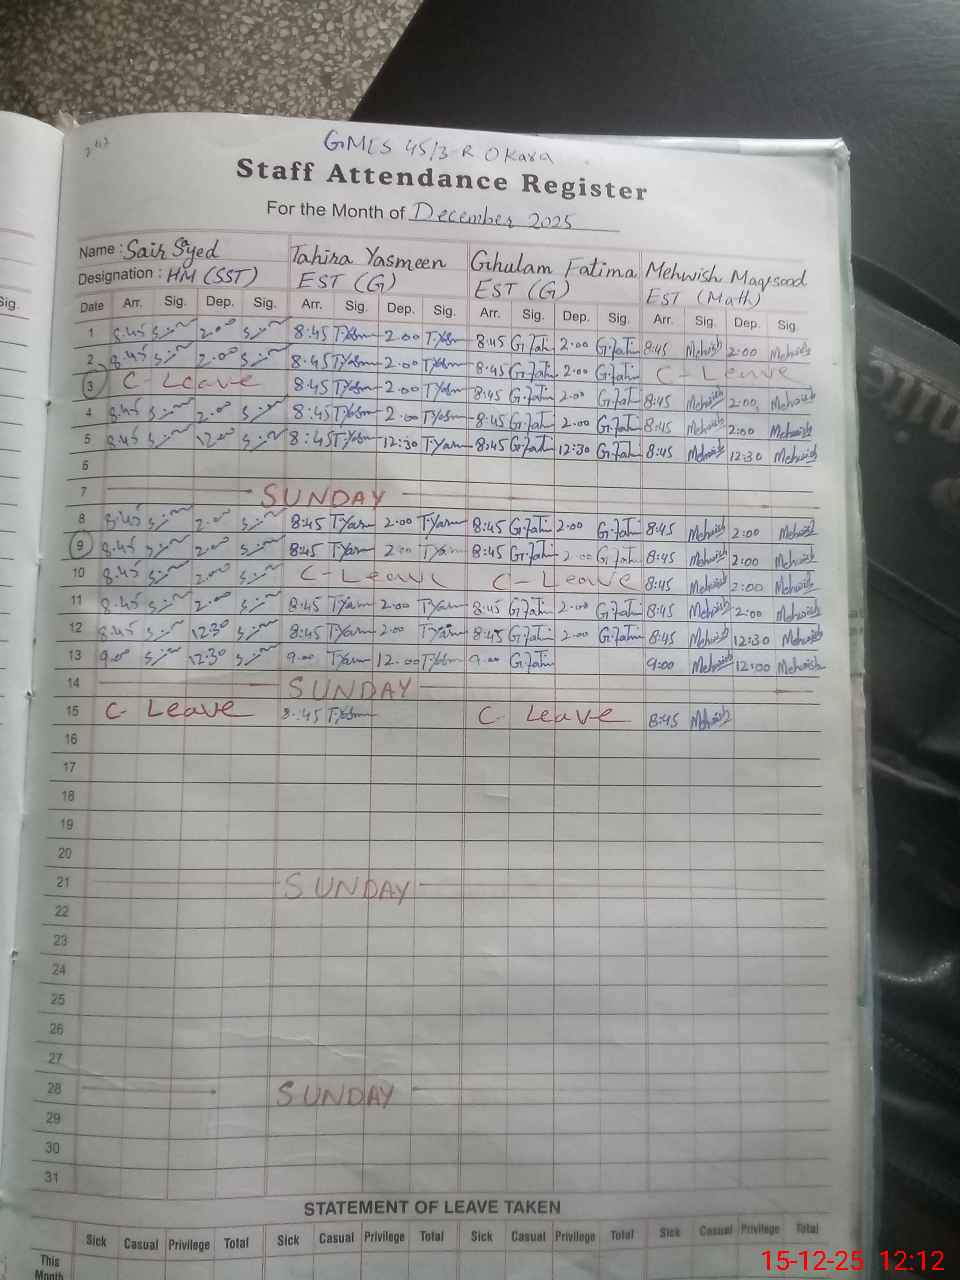 GMLS 45/3-R Okara
Staff Attendance Register
For the Month of December 2025
Name : Sair Syed Tahira Yasmeen Ghulam Fatima Mehwish Maqsood
Designation : HM (SST) EST (G) EST (G) EST (Math)
Date Arr. Sig. Dep. Sig. Arr. Sig. Dep. Sig. Arr. Sig. Dep. Sig. Arr. Sig. Dep. Sig.
1 8:45 2:00 8:45 T.Yasm 2:00 T.Yasm 8:45 G.Fati 2:00 G.Fati 8:45 Mehwish 2:00 Mehwish
2 8:45 2:00 8:45 T.Yasm 2:00 T.Yasm 8:45 G.Fati 2:00 G.Fati C - Leave
3 C - Leave 8:45 T.Yasm 2:00 T.Yasm 8:45 G.Fati 2:00 G.Fati 8:45 Mehwish 2:00 Mehwish
4 8:45 2:00 8:45 T.Yasm 2:00 T.Yasm 8:45 G.Fati 2:00 G.Fati 8:45 Mehwish 2:00 Mehwish
5 8:45 8:45 T.Yasm 12:30 T.Yasm 8:45 G.Fati 12:30 G.Fati 8:45 Mehwish 12:30 Mehwish
6
7 SUNDAY
8 8:45 2:00 8:45 T.Yasm 2:00 T.Yasm 8:45 G.Fati 2:00 G.Fati 8:45 Mehwish 2:00 Mehwish
9 8:45 2:00 8:45 T.Yasm 2:00 T.Yasm 8:45 G.Fati 2:00 G.Fati 8:45 Mehwish 2:00 Mehwish
10 8:45 2:00 C - Leave C - Leave 8:45 Mehwish 2:00 Mehwish
11 8:45 2:00 8:45 T.Yasm 2:00 T.Yasm 8:45 G.Fati 2:00 G.Fati 8:45 Mehwish 2:00 Mehwish
12 8:45 12:30 8:45 T.Yasm 2:00 T.Yasm 8:45 G.Fati 2:00 G.Fati 8:45 Mehwish 12:30 Mehwish
13 9:00 12:30 9:00 T.Yasm 12:00 T.Yasm 9:00 G.Fati 9:00 Mehwish 12:00 Mehwish
14 SUNDAY
15 C - Leave 8:45 T.Yasm C - Leave 8:45 Mehwish
16
17
18
19
20
21 SUNDAY
22
23
24
25
26
27
28 SUNDAY
29
30
31
STATEMENT OF LEAVE TAKEN
Sick Casual Privilege Total Sick Casual Privilege Total Sick Casual Privilege Total Sick Casual Privilege Total
This
Month
15-12-25 12:12